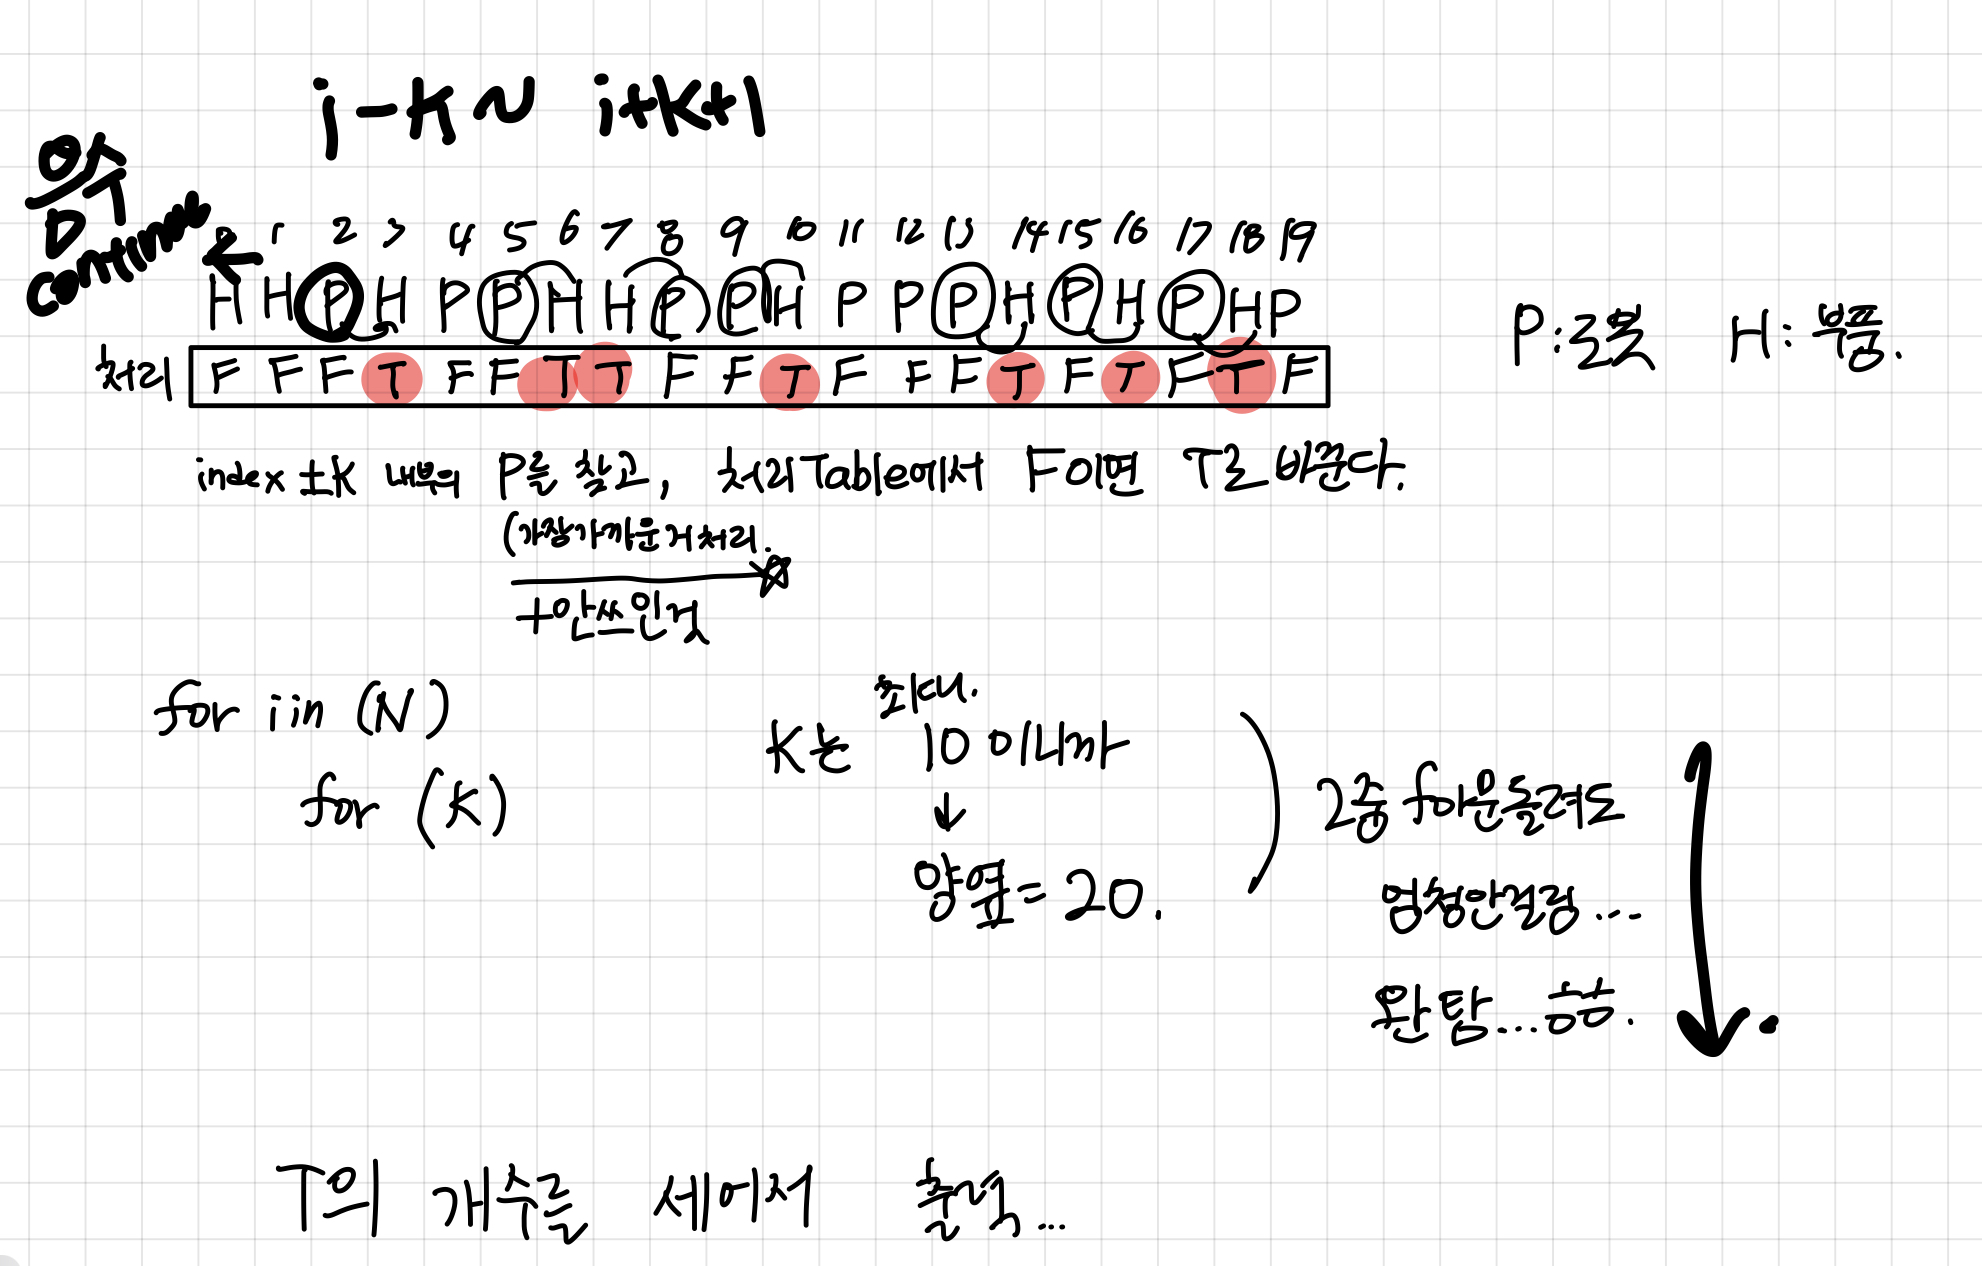 i-K ~ i+K+1
음수
continue
1 2 3 4 5 6 7 8 9 10 11 12 13 14 15 16 17 18 19
H H P H P P H H P P H P P P H P H P H P
P:로봇 H: 부품.
처리 F F F T F F T T F F T F F F T F T F T F
index ±K 내부의 P를 찾고, 처리 Table에서 F이면 T로 바꾼다.
(가장가까운거처리.
+안쓰인것
for i in (N)
for (K)
K는 최대. 10 이니까
↓
양옆=20.
2중 for운돌려도
엄청안걸림...
완탐...음음.
T의 개수를 세어서 출력...